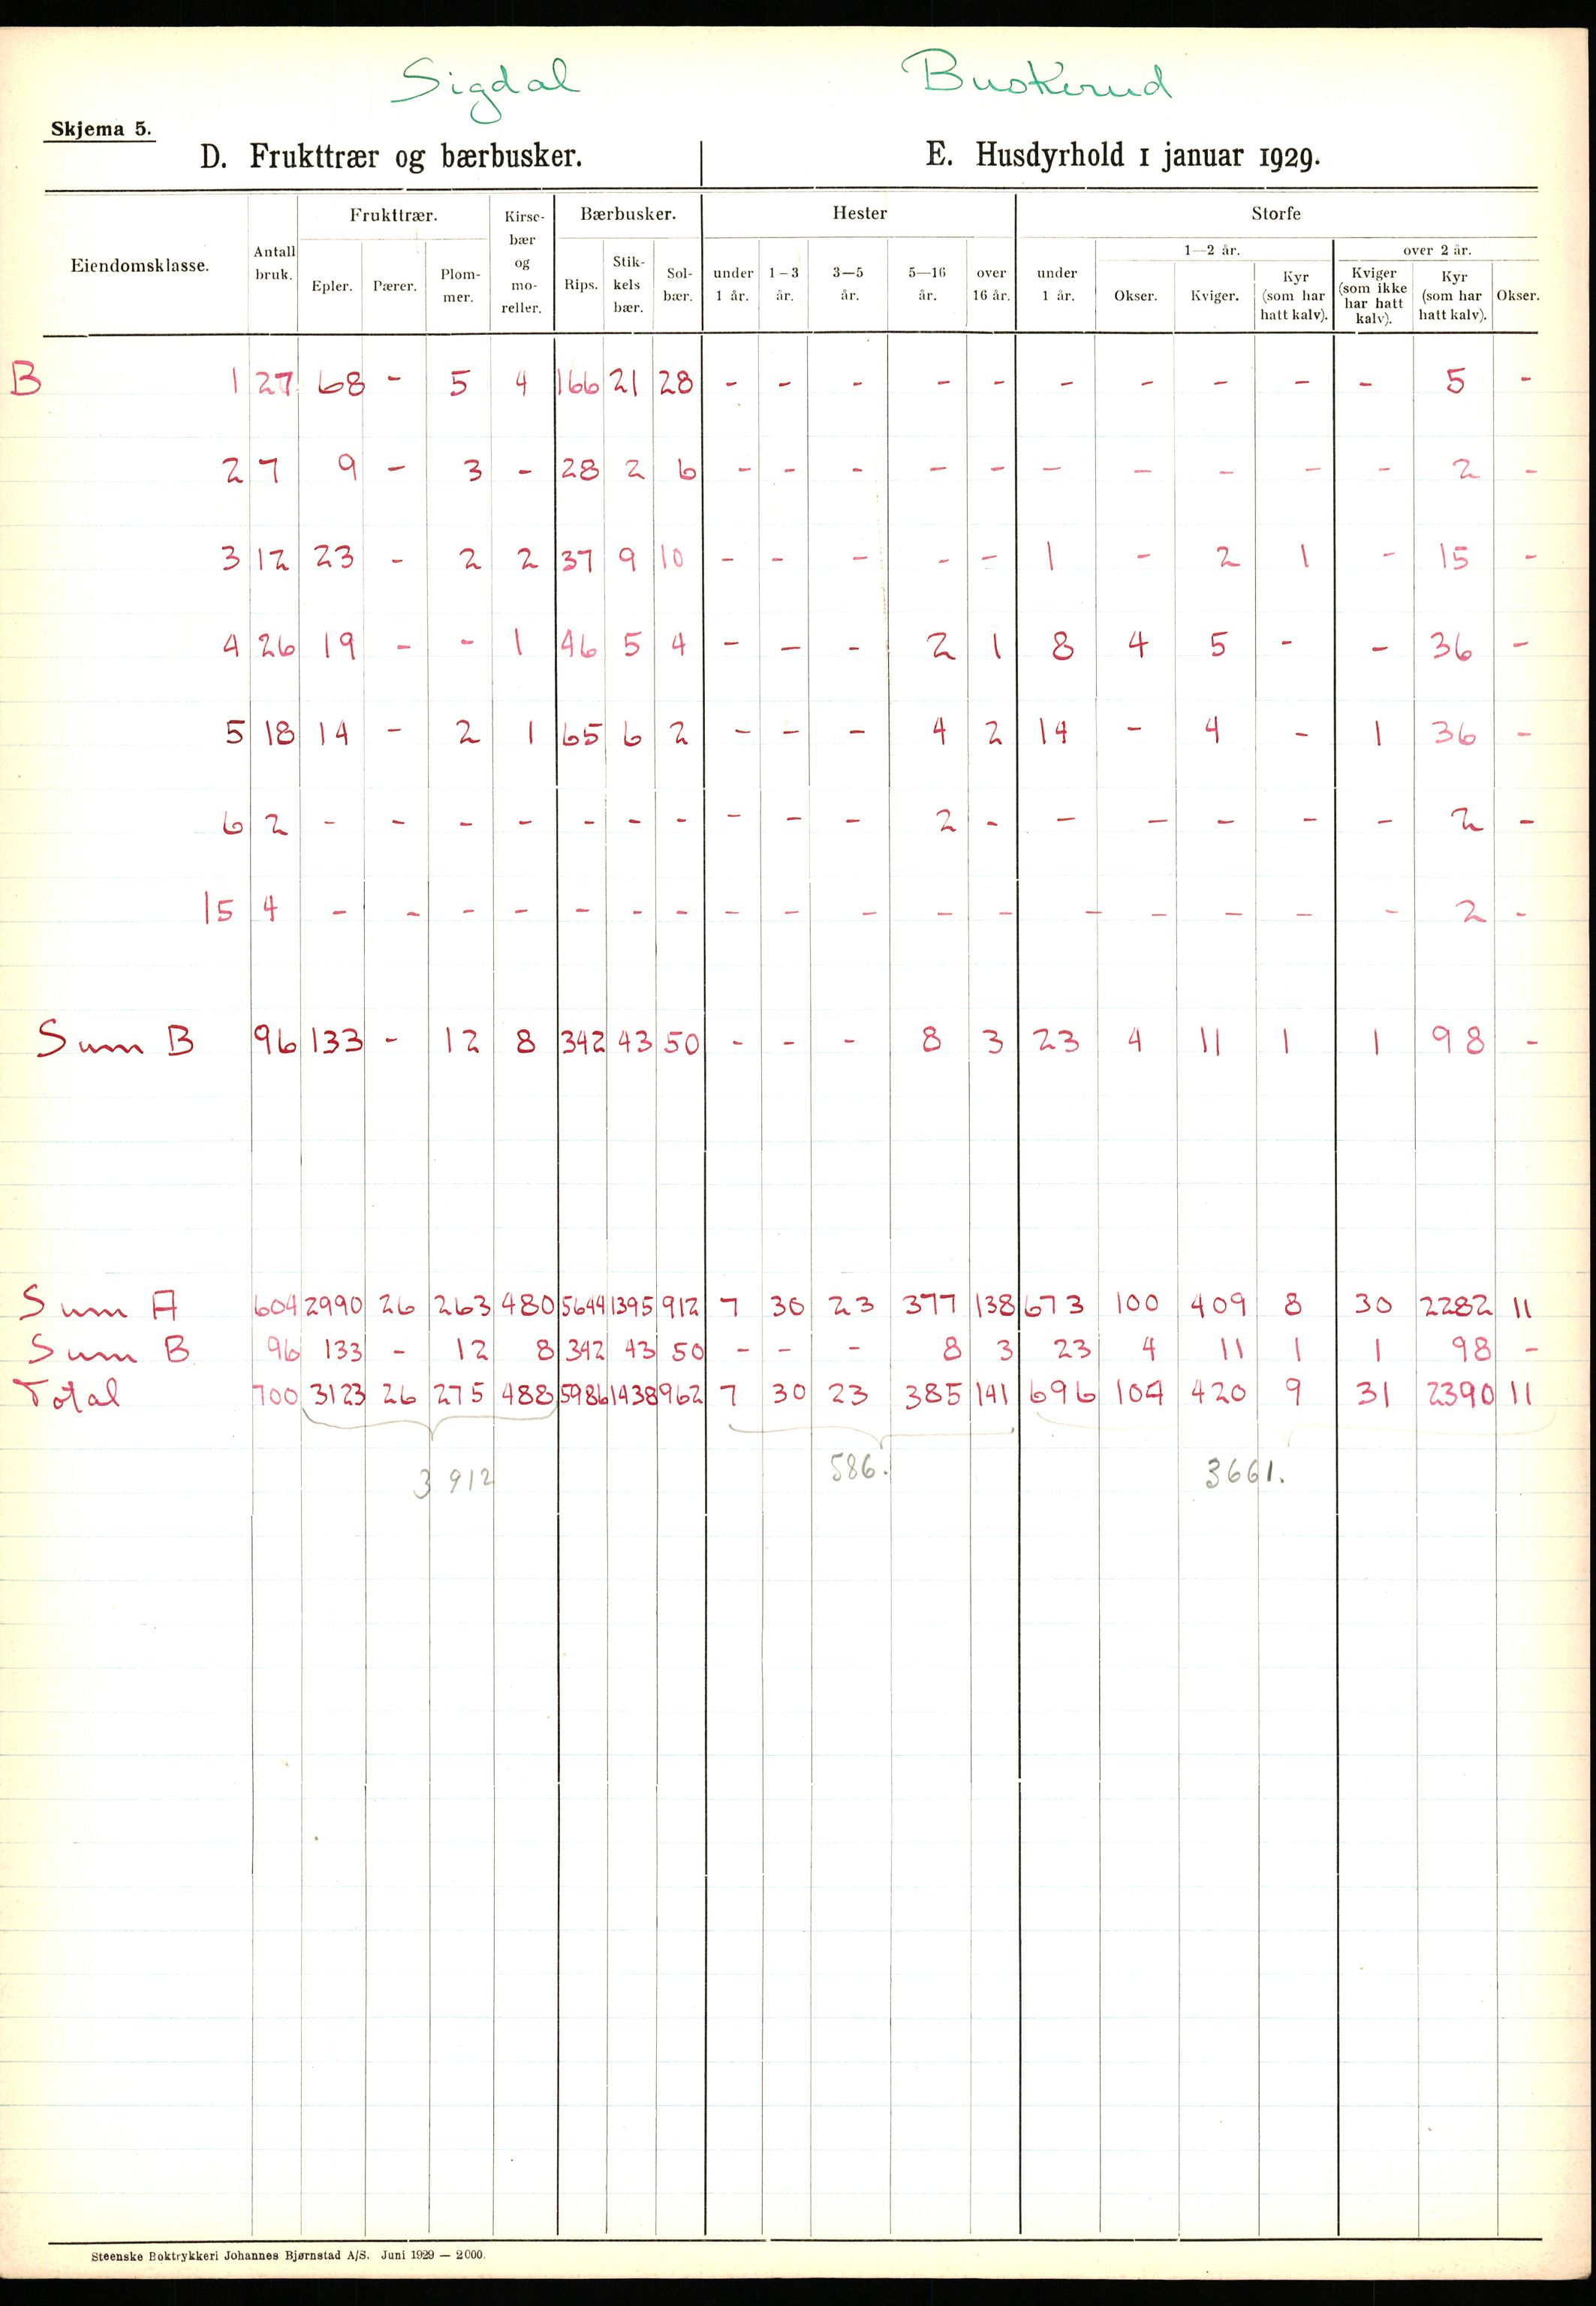 Sigdal Buskerud
Skjema 5.
D. Frukttrær og bærbusker. E. Husdyrhold 1 januar 1929.
Eiendomsklasse. Antall bruk. Frukttrær. Epler. Pærer. Plommer. Kirsebær og moreller. Bærbusker. Rips. Stikkels bær. Solbær. Hester under 1 år. 1—3 år. 3—5 år. 5—16 år. over 16 år. Storfe under 1 år. 1—2 år. Okser. Kviger. Kyr (som har hatt kalv). over 2 år. Kviger (som ikke har hatt kalv). Kyr (som har hatt kalv). Okser.
B 1 27 68 - 5 4 166 21 28 - - - - - - - - - - 5 -
2 7 9 - 3 - 28 2 6 - - - - - - - - - - 2 -
3 12 23 - 2 2 37 9 10 - - - - - 1 - 2 1 - 15 -
4 26 19 - - 1 46 5 4 - - - 2 1 8 4 5 - - 36 -
5 18 14 - 2 1 65 6 2 - - - 4 2 14 - 4 - 1 36 -
6 2 - - - - - - - - - - 2 - - - - - - 2 -
15 4 - - - - - - - - - - - - - - - - - 2 -
Sum B 96 133 - 12 8 342 43 50 - - - 8 3 23 4 11 1 1 98 -
Sum A 604 2990 26 263 480 5644 1395 912 7 30 23 377 138 673 100 409 8 30 2282 11
Sum B 96 133 - 12 8 342 43 50 - - - 8 3 23 4 11 1 1 98 -
Total 700 3123 26 275 488 5986 1438 962 7 30 23 385 141 696 104 420 9 31 2390 11
3 912 586. 3661.
Steenske Boktrykkeri Johannes Bjørnstad A/S. Juni 1929 — 2000.